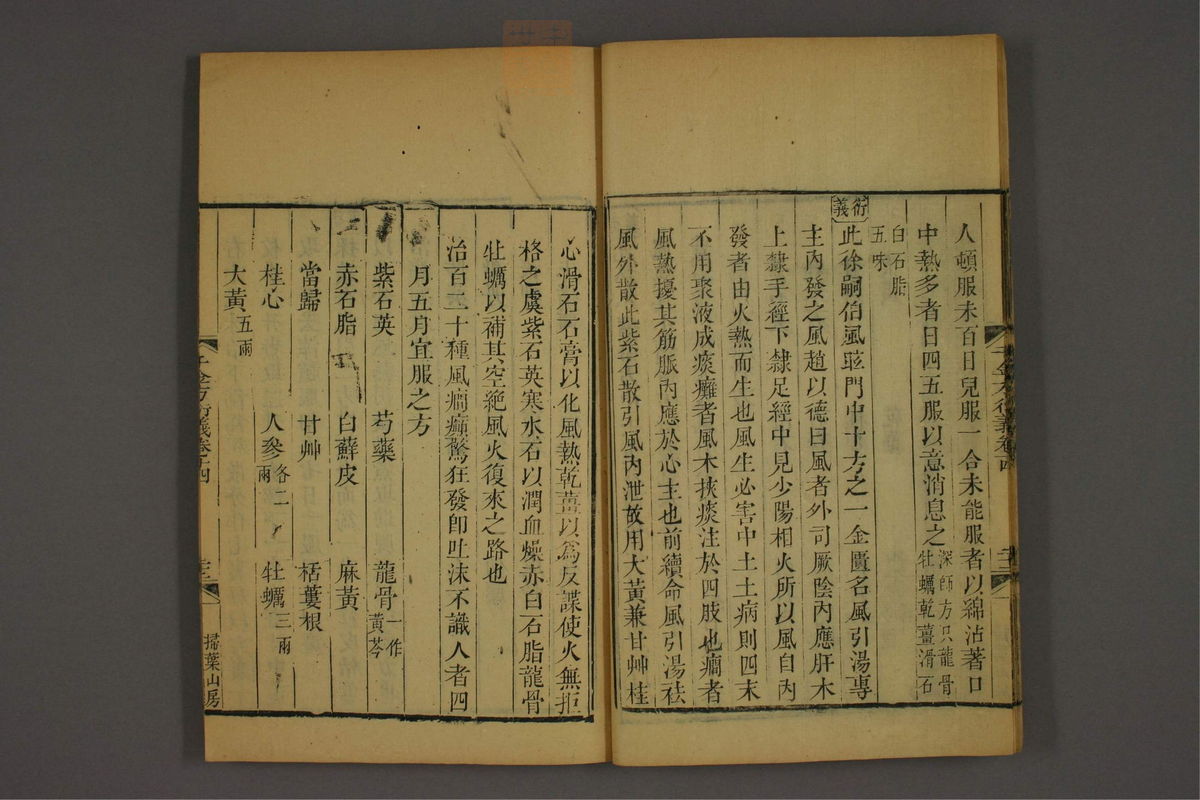 人頓服未百日兒服一合未能服者以綿沾著口
中熱多者日四五服以意消息之深師方只龍骨牡蠣乾薑滑石
白石脂五味
衍義
此徐嗣伯風眩門中十方之一金匱名風引湯專
主內發之風趙以德曰風者外司厥陰內應肝木
上隸手經下隸足經中見少陽相火所以風自內
發者由火熱而生也風生必害中土土病則四末
不用聚液成痰癱者風木挾痰注於四肢也癇者
風熱擾其筋脈內應於心主也前續命風引湯祛
風外散此紫石散引風內泄故用大黃兼甘艸桂
心滑石石膏以化風熱乾薑以為反諜使火無拒
格之虞紫石英寒水石以潤血燥赤白石脂龍骨
牡蠣以補其空絕風火復來之路也
治百二十種風癇癲驚狂發即吐沫不識人者四
月五月宜服之方
紫石英 芍藥 龍骨一作黃芩
赤石脂 白蘚皮 麻黃
當歸 甘艸 栝蔞根
桂心 人參各二兩 牡蠣三兩
大黃五兩
千金方衍義卷十四
掃葉山房